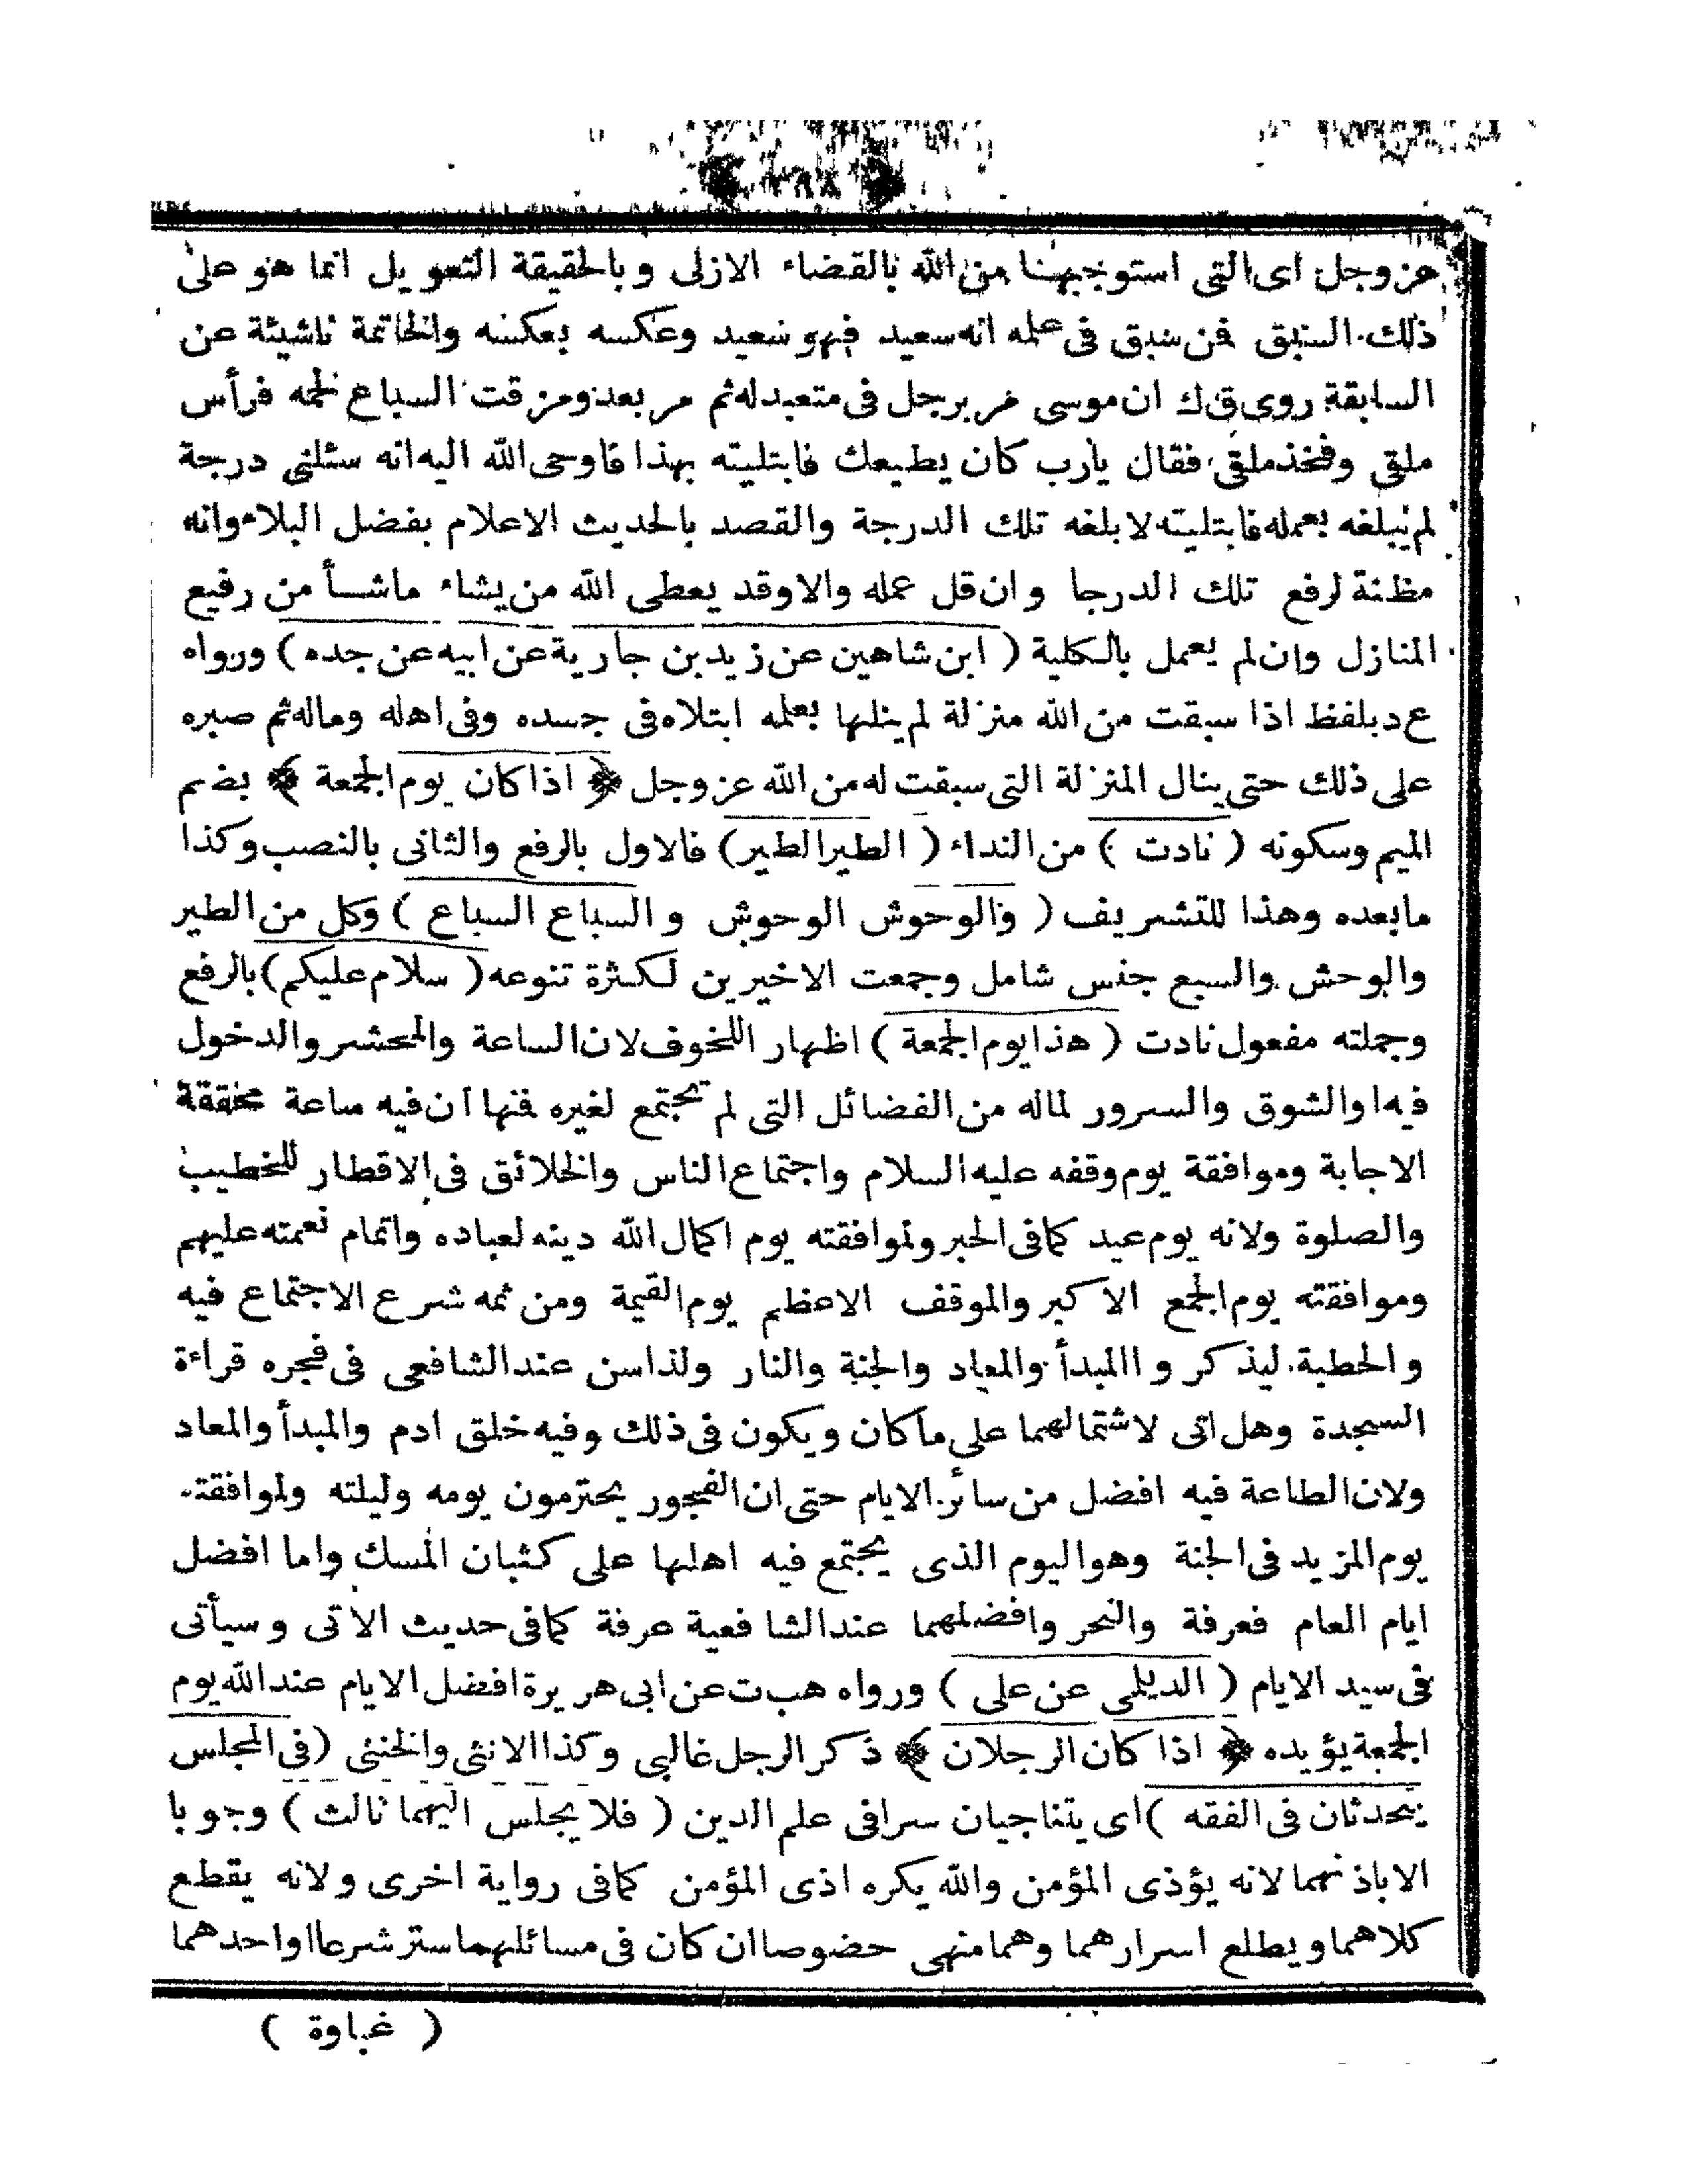 عزوجل اى التى استوجبها من الله بالقضاء الازلى وبالحقيقة التعويل انما هو على
ذلك السبق فمن سبق فى علمه انه سعيد فهو سعيد وعكسه بعكسه والخاتمة ناشيئة عن
السابقة روى ق ك ان موسى مر برجل فى متعبد له ثم مر بعد ومزقت السباع لحمه فرأس
ملقى وفخذ ملقى فقال يارب كان يطيعك فابتليته بهذا فاوحى الله اليه انه سئلنى درجة
لم يبلغه بعمله فابتليته لابلغه تلك الدرجة والقصد بالحديث الاعلام بفضل البلاء وانه
مظنة لرفع تلك الدرجا وان قل عمله والاوقد يعطى الله من يشاء ماشأ من رفيع
المنازل وان لم يعمل بالكلية ( ابن شاهين عن زيد بن جارية عن ابيه عن جده ) ورواه
ع د بلفظ اذا سبقت من الله منزلة لم ينلها بعلمه ابتلاه فى جسده وفى اهله وماله ثم صبره
على ذلك حتى ينال المنزلة التى سبقت له من الله عزوجل ﴿ اذا كان يوم الجمعة ﴾ بضم
الميم وسكونه ( نادت ) من النداء ( الطير الطير ) فالاول بالرفع والثانى بالنصب وكذا
مابعده وهذا للتشريف ( والوحوش الوحوش والسباع السباع ) وكل من الطير
والوحش والسبع جنس شامل وجمعت الاخيرين لكثرة تنوعه ( سلام عليكم ) بالرفع
وجملته مفعول نادت ( هذا يوم الجمعة ) اظهار اللخوف لان الساعة والمحشر والدخول
فيه اوالشوق والسرور لماله من الفضائل التى لم تجتمع لغيره فمنها ان فيه ساعة محققة
الاجابة وموافقة يوم وقفه عليه السلام واجتماع الناس والخلائق فى الاقطار للخطيب
والصلوة ولانه يوم عيد كما فى الخبر ولموافقته يوم اكمال الله دينه لعباده واتمام نعمته عليهم
وموافقته يوم الجمع الاكبر والموقف الاعظم يوم القيمة ومن ثمه شرع الاجتماع فيه
والخطبة ليذكر واالمبدأ والمعاد والجنة والنار ولذاسن عند الشافعى فى فجره قراءة
السجدة وهل اتى لاشتمالهما على ماكان ويكون فى ذلك وفيه خلق ادم والمبدأ والمعاد
ولان الطاعة فيه افضل من سائر الايام حتى ان الفجور يحترمون يومه وليلته ولموافقته
يوم المزيد فى الجنة وهواليوم الذى يجتمع فيه اهلها على كثبان المسك واما افضل
ايام العام فعرفة والنحر وافضلهما عند الشافعية عرفة كما فى حديث الآتى وسيأتى
فى سيد الايام ( الديلمى عن على ) ورواه هب ت عن ابى هريرة افضل الايام عند الله يوم
الجمعة يؤيده ﴿ اذا كان الرجلان ﴾ ذكر الرجل غالبى وكذا الانثى والخنثى ( فى المجلس
يتحدثان فى الفقه ) اى يتناجيان سرافى علم الدين ( فلا يجلس اليهما ثالث ) وجوبا
الاباذنهما لانه يؤذى المؤمن والله يكره اذى المؤمن كما فى رواية اخرى ولانه يقطع
كلاهما ويطلع اسرارهما وهما منهى حضوصا ان كان فى مسائلهما ستر شرعا اواحدهما
( غباوة )